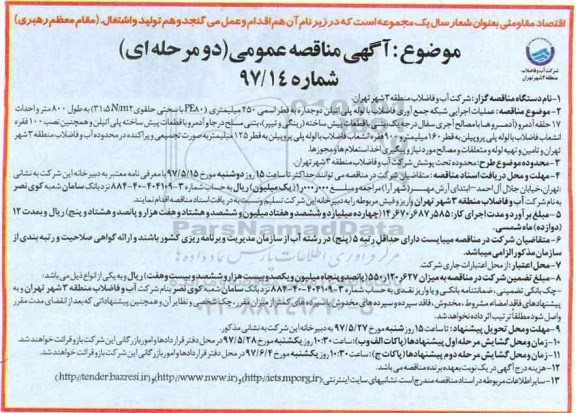 اقتصاد مقاومتی بعنوان شعار سال یک مجموعه است که در زیر نام آن هم اقدام و عمل می گنجد و هم تولید و اشتغال. (مقام معظم رهبری)
موضوع: آگهی مناقصه عمومی (دو مرحله ای)
شماره ۹۷/۱۴
شرکت آب و فاضلاب
منطقه ۳ شهر تهران
۱- نام دستگاه مناقصه گزار: شرکت آب و فاضلاب منطقه ۳ شهر تهران
۲- موضوع مناقصه: عملیات اجرایی شبکه جمع آوری فاضلاب با لوله پلی اتیلن دوجداره به قطر اسمی ۲۵۰ میلیمتری (PE۸۰ با سختی حلقوی ۳۱،۵N/m۲) به طول ۸۰۰ متر و احداث
۱۷ حلقه آدمرو (آدمروها با مصالح آجری سفال درجه یک، بتنی با قطعات پیش ساخته (رینگی و تیپر)، بتنی مسلح درجا و آدمرو با قطعات پیش ساخته پلی اتیلن و همچنین نصب ۱۰۰ فقره
انشعاب فاضلاب با لوله پلی پروپیلن به قطر ۱۶۰ میلیمتر و ۹۰۰ فقره انشعاب فاضلاب با لوله پلی پروپیلن به قطر ۱۲۵ میلیمتر به صورت تجمیعی و پراکنده در محدوده آب و فاضلاب منطقه ۳ شهر
تهران و تامین و تهیه لوله و متعلقات و مصالح مورد نیاز و پیگیری اخذ استعلام ها و مجوزها
۳- محدوده موضوع طرح: محدوده تحت پوشش شرکت آب و فاضلاب منطقه ۳ شهر تهران.
۴- مهلت و محل دریافت اسناد مناقصه: متقاضیان شرکت در مناقصه می توانند حداکثر تا ساعت ۱۵ روز دوشنبه مورخ ۹۷/۵/۱۵ با معرفی نامه معتبر به دبیرخانه این شرکت به نشانی
تهران، خیابان جلال آل احمد- ابتدای آرش مهر (شهرآرا) مراجعه و مبلغ ۱،۰۰۰،۰۰۰ (یک میلیون) ریال به حساب شماره ۳-۴۰۴۱۰۹-۴۰-۸۸۴ نزد بانک سامان شعبه کوی نصر
به نام شرکت آب و فاضلاب منطقه ۳ شهر تهران واریز و فیش مربوطه را به دبیرخانه این شرکت تسلیم و نسبت به دریافت اسناد مناقصه اقدام نمایند.
۵- مبلغ برآورد و مدت اجرای کار: ۱۴،۶۷۰،۶۸۷،۵۸۵ (چهارده میلیارد و ششصد و هفتاد میلیون و ششصد و هشتاد و هفت هزار و پانصد و هشتاد و پنج) ریال و بمدت ۱۲
(دوازده) ماه شمسی.
۶- متقاضیان شرکت در مناقصه میبایست دارای حداقل رتبه ۵ (پنج) در رشته آب از سازمان مدیریت و برنامه ریزی کشور باشند و ارائه گواهی صلاحیت و رتبه بندی از
سازمان مذکور الزامی میباشد.
۷- محل اعتبار: از محل اعتبارات جاری شرکت
۸- مبلغ تضمین شرکت در مناقصه به میزان ۵۵۰،۱۲۰،۶۲۷ (پانصد و پنجاه میلیون و یکصد و بیست هزار و ششصد و بیست و هفت) ریال و به یکی از انواع ذیل می باشد:
-چک بانکی تضمینی، ضمانتنامه بانکی و یا واریز نقدی به حساب شماره ۳-۴۰۴۱۰۹-۴۰-۸۸۴ نزد بانک سامان شعبه کوی نصر بنام شرکت آب و فاضلاب منطقه ۳ شهر تهران و به
پیشنهادهای فاقد امضاء مشروط، مخدوش، فاقد سپرده و سپرده های مخدوش، سپرده های کمتر از میزان مقرر، چک شخصی و نظایر آن و همچنین پیشنهاداتی که بعد از انقضای مدت مقرر
واصل شود مطلقا ترتیب اثر داده نخواهد شد.
۹- مهلت و محل تحویل پیشنهاد: تا ساعت ۱۵ روز شنبه مورخ ۹۷/۵/۲۷ به دبیرخانه این شرکت به نشانی مذکور.
۱۰- زمان و محل گشایش مرحله اول پیشنهادها (پاکات الف و ب): ساعت ۱۰:۳۰ روز یکشنبه مورخ ۹۷/۵/۲۸ در محل دفتر قراردادها و امور بازرگانی این شرکت باز و قرائت خواهند شد.
۱۱- زمان و محل گشایش مرحله دوم پیشنهادها (پاکات ج): ساعت ۱۰:۳۰ روز یکشنبه مورخ ۹۷/۶/۴ در محل دفتر قراردادها و امور بازرگانی این شرکت باز و قرائت خواهند شد.
۱۲- هزینه درج آگهی در یک نوبت به عهده برنده مناقصه می باشد.
۱۳- سایر اطلاعات مربوطه در اسناد مناقصه مندرج است. نشانیهای سایت اینترنتی (http://iets.mporg.ir) و (http://www.nww.ir) و (http://tender.bazresi.ir)
ParsNamadData